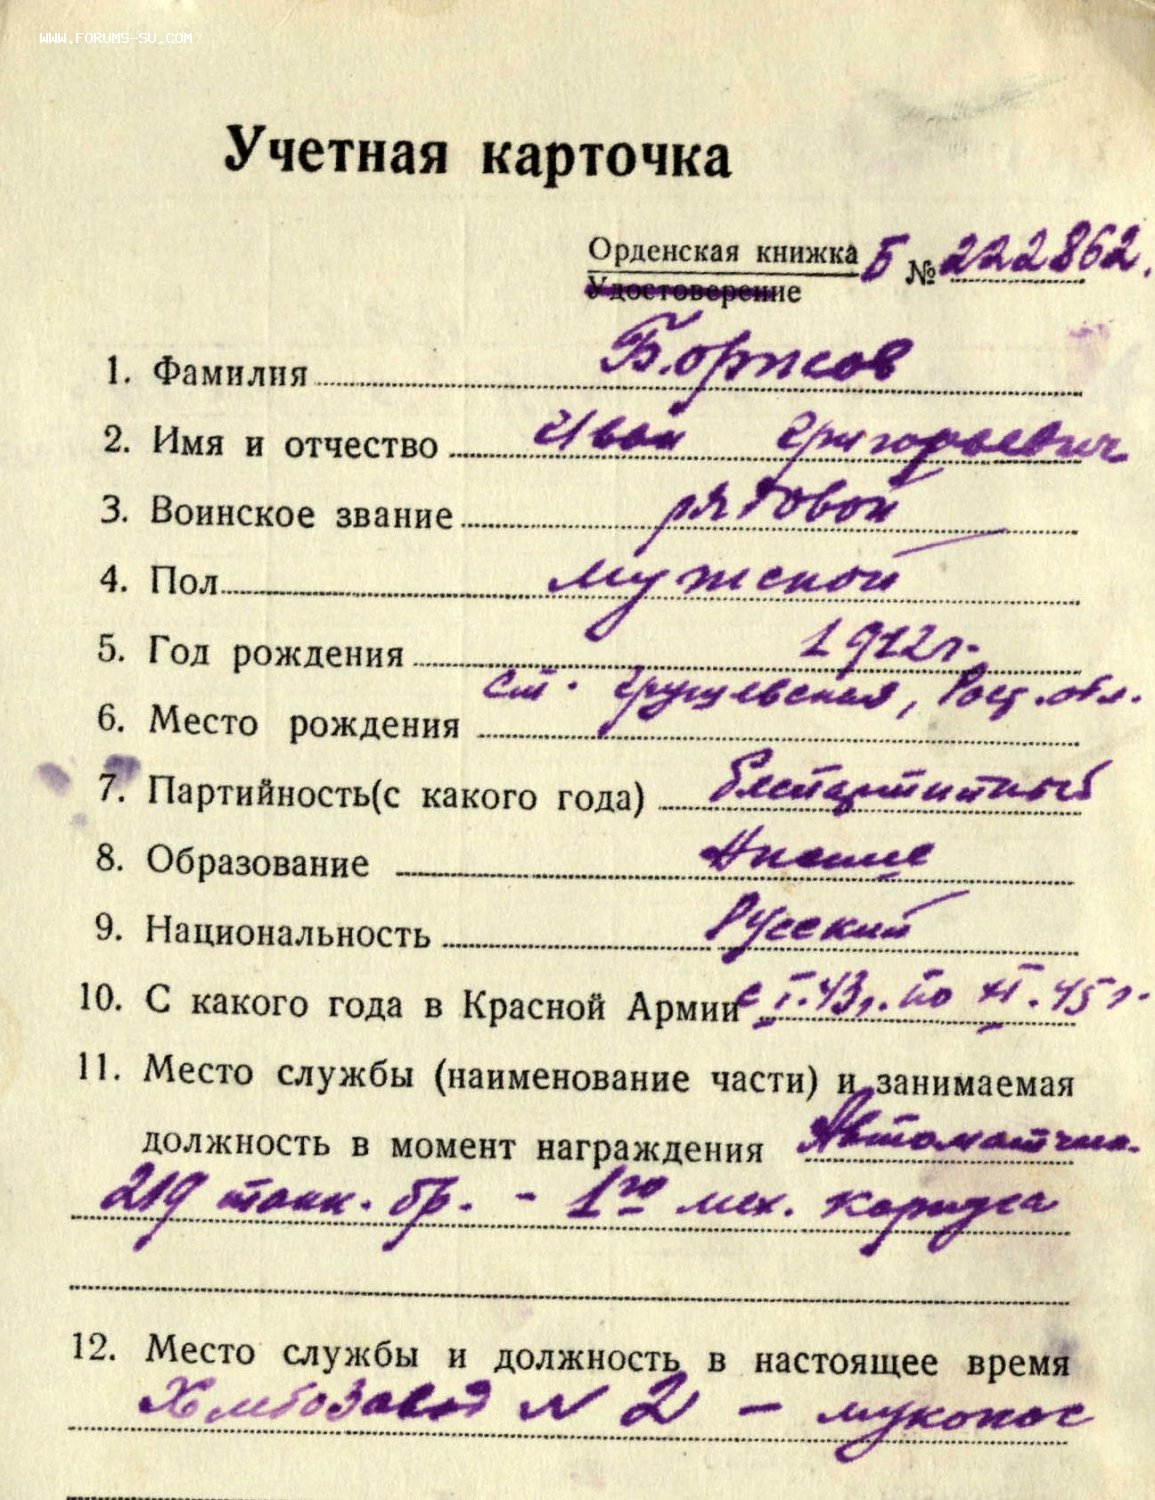 WWW.FORUMS-SU.COM
Учетная карточка
Орденская книжка Б № 222862.
Удостоверение
1. Фамилия Борисов
2. Имя и отчество Иван Григорьевич
3. Воинское звание рядовой
4. Пол мужской
5. Год рождения 1912г.
6. Место рождения ст. Грушевская, Рост. обл.
7. Партийность(с какого года) беспартийный
8. Образование Низшее
9. Национальность Русский
10. С какого года в Красной Армии с I.43г. по XI.45г.
11. Место службы (наименование части) и занимаемая
должность в момент награждения Автоматчик.
219 танк. бр. - 1го мех. корпуса
12. Место службы и должность в настоящее время
Хлебозавод N 2 -